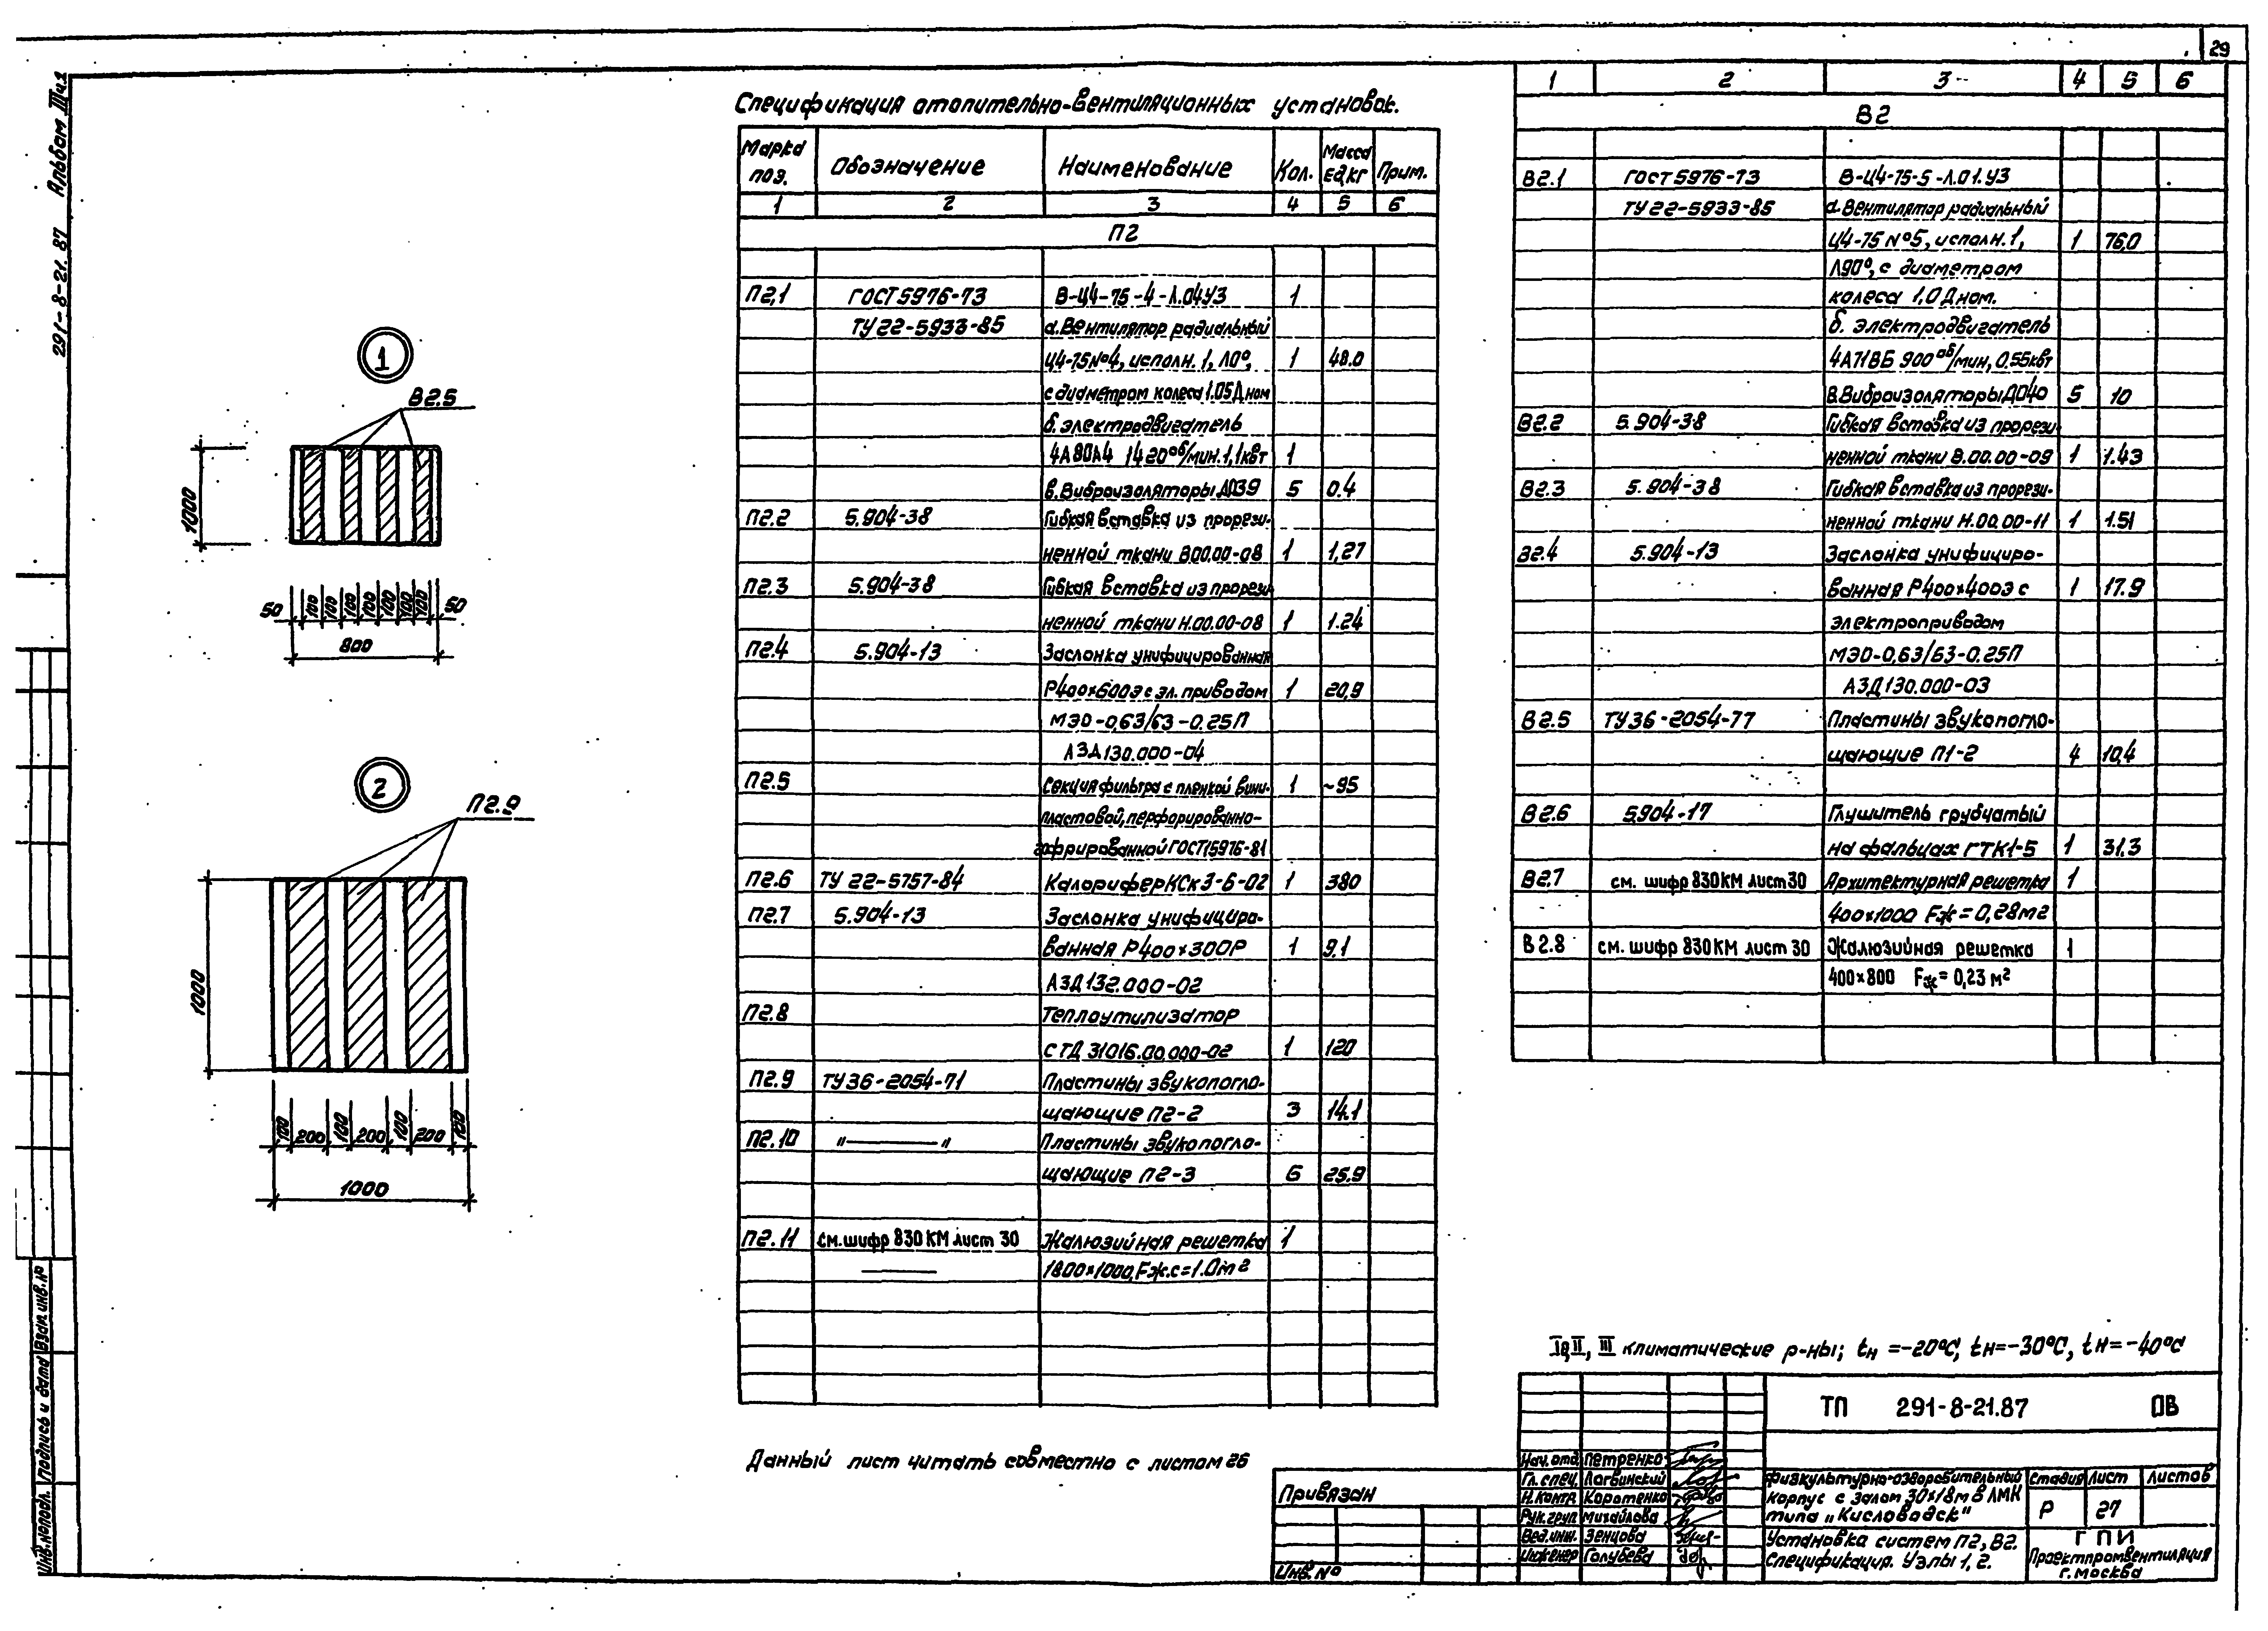 29
291-8-21.87 Альбом III ч.1
1
В2.5
1000
50 100 100 100 100 100 100 100 50
800
2
П2.9
1000
100 200 100 200 100 200 100
1000
Спецификация отопительно-вентиляционных установок.
Марка поз. Обозначение Наименование Кол. Масса ед.кг Прим.
1 2 3 4 5 6
П2
П2.1 ГОСТ 5976-73 В-Ц4-75-4-Л.04У3 1
ТУ 22-5933-85 а.Вентилятор радиальный
Ц4-75№4, исполн. 1, Л0°, 1 48.0
с диаметром колеса 1.05Дном
б. электродвигатель
4А80А4 1420об/мин. 1,1квт 1
в.Виброизоляторы ДО39 5 0.4
П2.2 5.904-38 Гибкая вставка из прорези-
ненной ткани В00.00-08 1 1,27
П2.3 5.904-38 Гибкая вставка из прорези
ненной ткани Н.00.00-08 1 1.24
П2.4 5.904-13 Заслонка унифицированная
Р400×600Э с эл. приводом 1 20,9
МЭО-0,63/63-0.25П
АЗД130.000-04
П2.5 Секция фильтра с пленкой вини-
пластовой, перфорированно-
гофрированной ГОСТ15976-81 1 ~95
П2.6 ТУ 22-5757-84 Калорифер КСк3-6-02 1 380
П2.7 5.904-13 Заслонка унифициро-
ванная Р400×300Р 1 9.1
АЗД132.000-02
П2.8 Теплоутилизатор
СТД 31016.00.000-02 1 120
П2.9 ТУ36-2054-71 Пластины звукопогло-
щающие П2-2 3 14.1
П2.10 "————" Пластины звукопогло-
щающие П2-3 6 25.9
П2.11 См.шифр 830 КМ лист 30 Жалюзийная решетка 1
1800×1000, Fж.с=1.0м2
Данный лист читать совместно с листом 26
1 2 3 4 5 6
В2
В2.1 ГОСТ 5976-73 В-Ц4-75-5-Л.01.У3
ТУ 22-5933-85 а.Вентилятор радиальный
Ц4-75 №5, исполн. 1, 1 76,0
Л90°, с диаметром
колеса 1,0 Дном.
б. электродвигатель
4А71В6 900 об/мин, 0.55квт
в.Виброизоляторы ДО40 5 10
В2.2 5.904-38 Гибкая вставка из прорези
ненной ткани В.00.00-09 1 1.43
В2.3 5.904-38 Гибкая вставка из прорези-
ненной ткани Н.00.00-11 1 1.51
В2.4 5.904-13 Заслонка унифициро-
ванная Р400×400Э с 1 17.9
электроприводом
МЭО-0,63/63-0.25П
АЗД130.000-03
В2.5 ТУ36-2054-77 Пластины звукопогло-
щающие П1-2 4 10,4
В2.6 5.904-17 Глушитель трубчатый
на фальцах ГТК1-5 1 31.3
В2.7 см. шифр 830КМ лист 30 Архитектурная решетка 1
400×1000 Fж=0,28м2
В2.8 см. шифр 830 КМ лист 30 Жалюзийная решетка 1
400×800 Fж=0,23 м2
II, III климатические р-ны; tн =-20°С, tн=-30°С, tн=-40°С
ТП 291-8-21.87 ОВ
Нач. отд. Петренко
Гл. спец. Логвинский
Н.контр. Коротенко
Рук. груп Михайлова
Вед.инж. Зенцова
Инженер Голубева
Физкультурно-оздоровительный
корпус с залом 30×18м в ЛМК
типа "Кисловодск"
Стадия Лист Листов
Р 27
Установка систем П2, В2.
Спецификация. Узлы 1, 2.
ГПИ
Проектпромвентиляция
г. Москва
Привязан
Инв.№
Инв.№подл. Подпись и дата Взам. инв.№